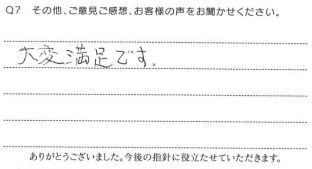 Q7 その他、ご意見ご感想、お客様の声をお聞かせください。
大変満足です。
ありがとうございました。今後の指針に役立たせていただきます。